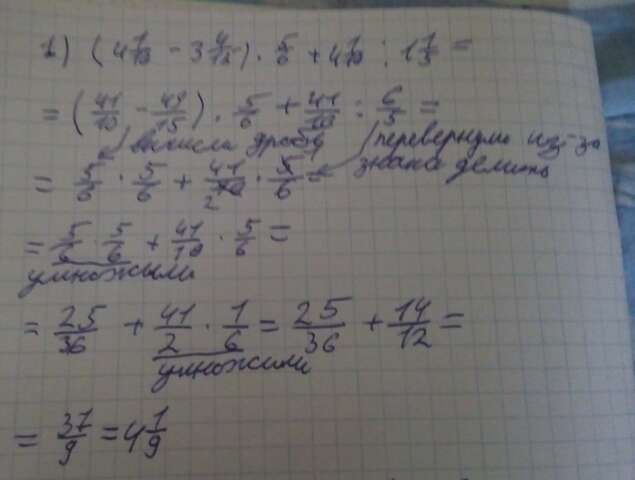 1) (4 1/10 - 3 4/15) · 5/6 + 4 1/10 : 1 1/5 =
= (41/10 - 49/15) · 5/6 + 41/10 : 6/5 =
дробь
перевернули из-за
знака делить
= 5/6 · 5/6 + 41/10 · 5/6 =
2
= 5/6 · 5/6 + 41/10 · 5/6 =
умножыли
= 25/36 + 41/2 · 1/6 = 25/36 + 14/12 =
умножили
= 37/9 = 4 1/9